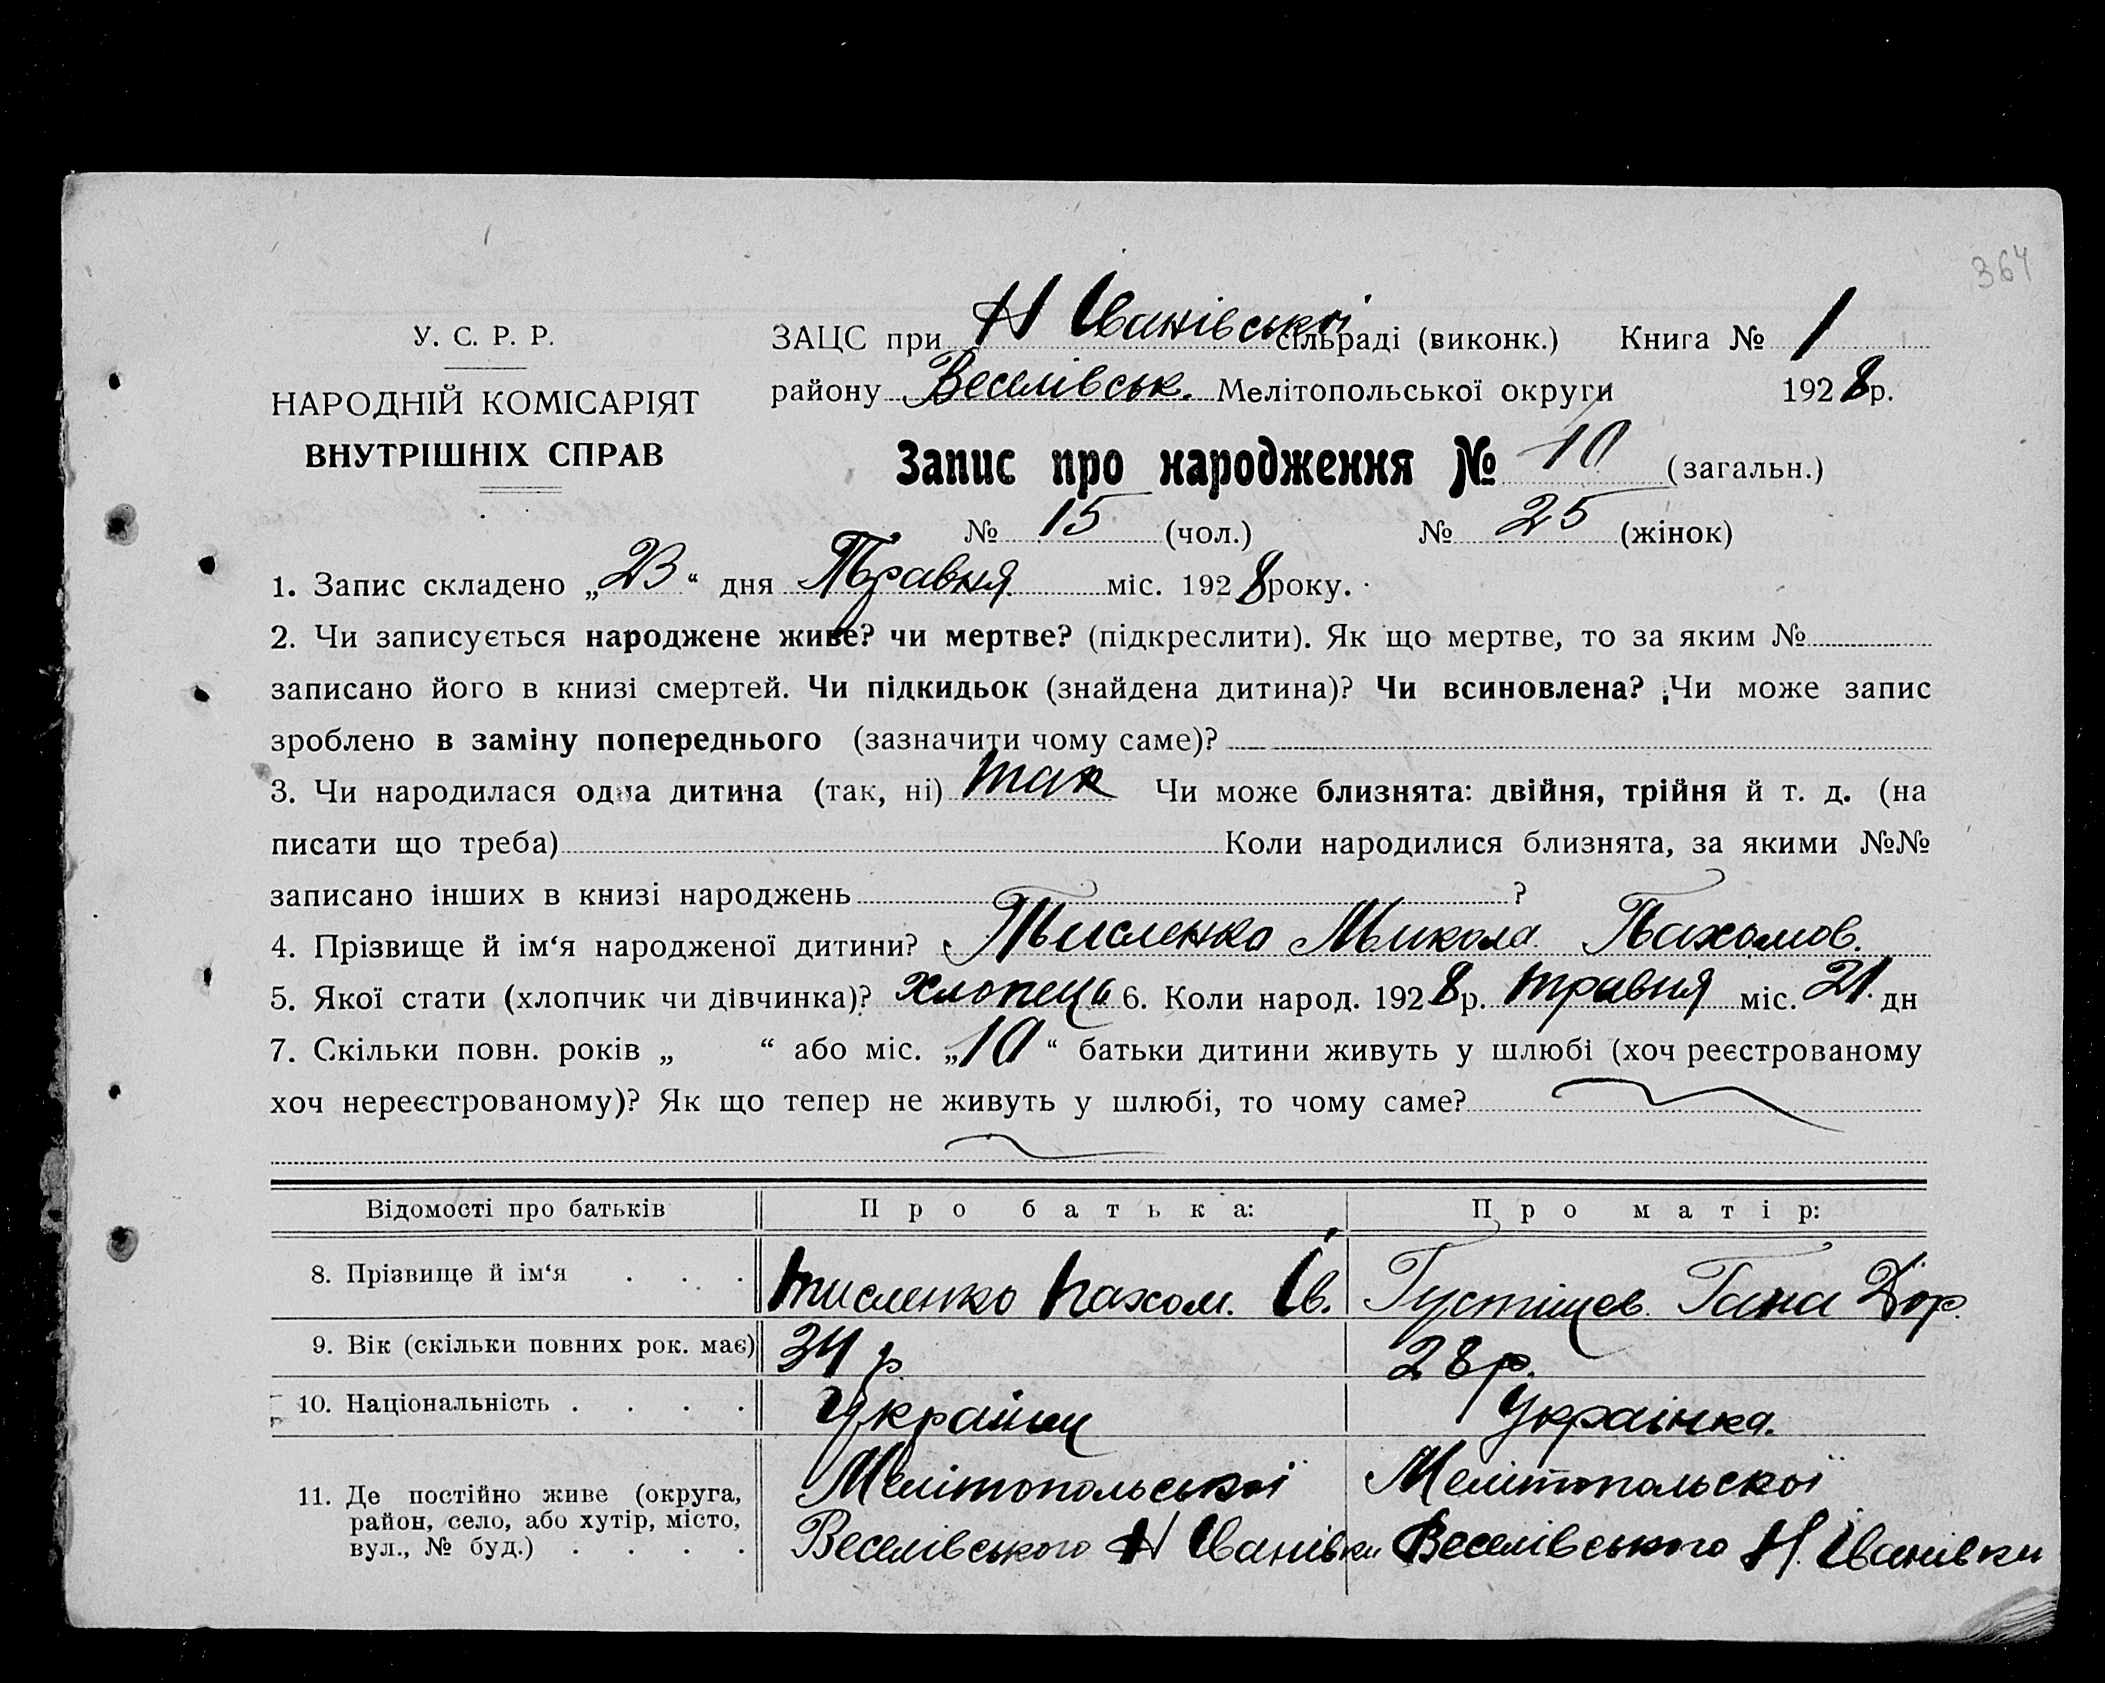 364
У. С. Р. Р.
НАРОДНІЙ КОМІСАРІЯТ
ВНУТРІШНІХ СПРАВ
ЗАЦС при Н Іванівській сільраді (виконк.) Книга № 1
району Веселівськ. Мелітопольської округи 1928 р.
Запис про народження № 10 (загальн.)
№ 15 (чол.) № 25 (жінок)
1. Запис складено „23“ дня Травня міс. 1928 року.
2. Чи записується народжене живе? чи мертве? (підкреслити). Як що мертве, то за яким №
записано його в книзі смертей. Чи підкидьок (знайдена дитина)? Чи всиновлена? Чи може запис
зроблено в заміну попереднього (зазначити чому саме)?
3. Чи народилася одна дитина (так, ні) так Чи може близнята: двійня, трійня й т. д. (на
писати що треба) Коли народилися близнята, за якими №№
записано інших в книзі народжень ?
4. Прізвище й ім‘я народженої дитини? Тисленко Микола Пахомов.
5. Якої стати (хлопчик чи дівчинка)? хлопець 6. Коли народ. 1928 р. травня міс. 21 дн
7. Скільки повн. років „ “ або міс. „10“ батьки дитини живуть у шлюбі (хоч реєстрованому
хоч нереєстрованому)? Як що тепер не живуть у шлюбі, то чому саме?
Відомості про батьків Про батька: Про матір:
8. Прізвище й ім‘я . . . Тисленко Пахом. Ів. Ганна Дор.
9. Вік (скільки повних рок. має) 34 р 28 р.
10. Національність . . . . Українец Українка.
11. Де постійно живе (округа, Мелітопольської Мелітопольскої
район, село, або хутір, місто,
вул., № буд.) . . . . Веселівського Н Іванівки Веселівського Н. Іванівки